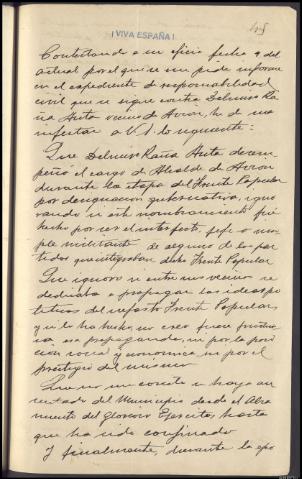 ¡VIVA ESPAÑA!
Contestando a su oficio fecha 9 del
actual por el que se me pide informe
en el expediente de responsabilidad
civil que se sigue contra Delmiro Ra
ña Auta vecino de Avion, he de ma
nifestar a V.S. lo siguiente:
Que Delmiro Raña Auta desem
peñó el cargo de Alcalde de Avion
durante la etapa del Frente Popular
por designacion gubernativa, igno
rando si este nombramiento fué
hecho por ser el interfecto, jefe o sim
ple militante de alguno de los par
tidos que integraban dicho Frente Popular
Que ignoro si entre sus vecinos se
dedicaba a propagar las ideas po
liticas del nefasto Frente Popular,
y si lo ha hecho, no creo fuera fructuo
sa esa propaganda, ni por la posi
cion social y economica ni por el
prestigio del mismo
Que no me consta se haya au
sentado del Municipio desde el Alza
miento del glorioso Ejercito, hasta
que ha sido confinado
Y finalmente, durante la epo